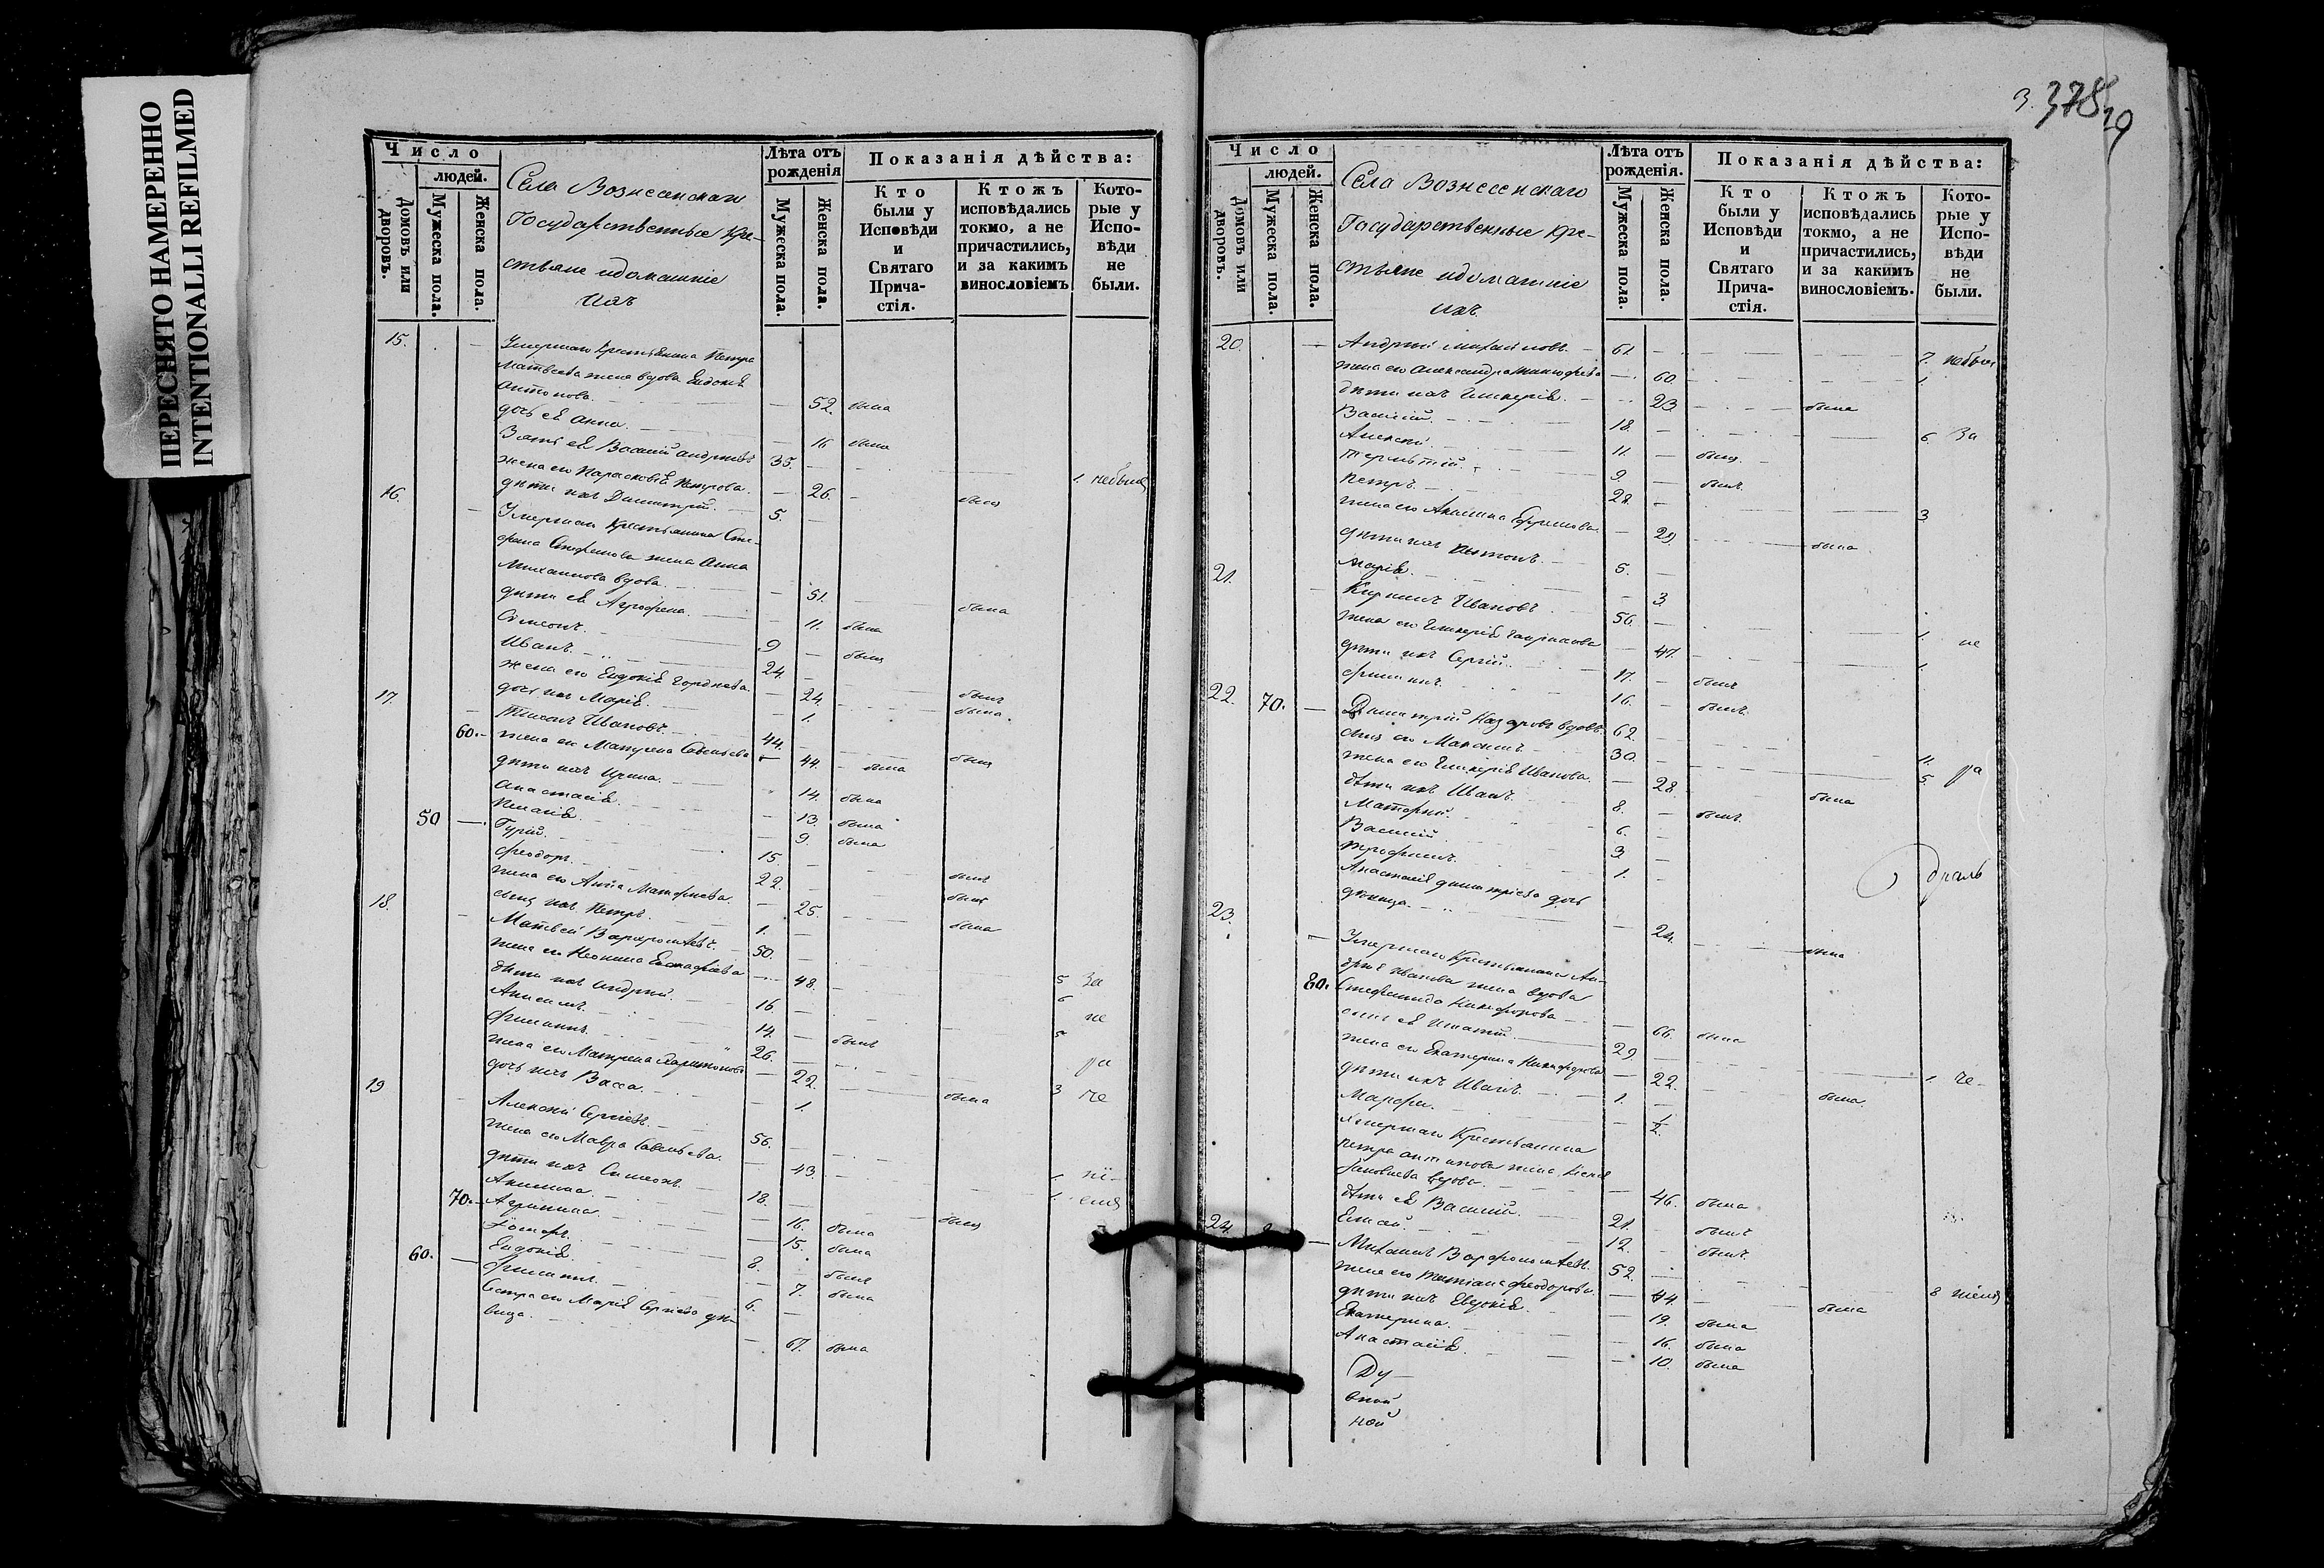 ПЕРЕСНЯТО НАМЕРЕННО
INTENTIONALLI REFILMED
Число
людей.
Домовъ или дворовъ.
Мужеска пола.
Женска пола.
Села Вознесенскаго
Государственные Кре-
стьяне и домашніе
ихъ
Лѣта отъ рожденія
Мужеска пола.
Женска пола.
Показанія дѣйства:
Кто были у Исповѣди и Святаго Прича-стія.
Ктожъ исповѣдались токмо, а не причастились, и за какимъ винословіемъ
Кото-рые у Испо-вѣди не были.
15. Умершаго Крестьянина Петра
Матвѣева жена вдова Евдокія
Антонова. 52. была
дочь ея Анна. 16 была
Зять ея Василій Андреевъ 35. 1. небылъ
жена его Парасковія Петрова. 26.
дѣти ихъ Димитрій. 5.
16. Умершаго Крестьянина Сте-
фана Стефанова жена Анна
Михаилова вдова. 51. была
дѣти ея Агрофена. 11. была
Симеонъ. 9
Иванъ. 24.
жена его Евдокія Гордѣева. 24.
дочь ихъ Марія. 1.
17. Тихонъ Ивановъ. 44.
60. жена его Матрена Савельева 44. была
дѣти ихъ Ирина. 14. была
Анастасія. 13. была
Пелагія. 9. была
50 Гурій. 15
Феодоръ. 22.
жена его Анна 25. была
сынъ ихъ Петръ. 1.
18. Матвей Варфоломѣевъ. 50. 5 За
жена его Неонила Евстафіева 48. 6 не
дѣти ихъ Андрей. 16. 5
Анисимъ. 14. былъ
Филиппъ. 26. ра
жена его Матрена Харитонова 22. была 3 че
дочь ихъ Васса. 1.
19 Алексѣй Сергѣевъ. 56. 1. ні-
жена его Мавра Савельева. 43. 1. емъ
дѣти ихъ Симеонъ. 18.
Акилина. 16. была
70. Агрипина. 15. была
8. былъ
Евдокія. 7. была
60. Филиппъ. 6.
Сестра его Марія Сергѣева дѣ-
вица. 67. была
3. 378 19
Число
людей.
Домовъ или дворовъ.
Мужеска пола.
Женска пола.
Села Вознесенскаго
Государственные Кре-
стьяне и домашніе
ихъ
Лѣта отъ рожденія.
Мужеска пола.
Женска пола.
Показанія дѣйства:
Кто были у Исповѣди и Святаго Прича-стія.
Ктожъ исповѣдались токмо, а не причастились, и за какимъ винословіемъ.
Кото-рые у Испо-вѣди не были.
20. Андрей Михайловъ. 61. 7. небыл
жена его Александра 60. 1
дѣти ихъ Гликерія. 23. была
Василій. 18. 6. За
Алексѣй. 11. былъ
9. былъ
Петръ. 28. 3
жена его Акилина Ефремова. 29. была
дѣти ихъ Антонъ. 5.
Марія. 3
21. Кириллъ Ивановъ. 56. 1. не
жена его Гликерія 47. 1.
дѣти ихъ Сергѣй. 17. былъ
Филиппъ. 16. былъ
22. 70. Димитрій Назаровъ вдовъ. 62. 11.
сынъ его Максимъ. 30. 5 ра
жена его Гликерія Иванова. 28. была
дѣти ихъ Иванъ. 8. былъ
6.
Василій 3
Трофимъ. 1.
Анастасія Димитріева дочь
дѣвица. 24. была
23. Умершаго Крестьянина Ан-
дрея Иванова жена вдова
80. Стефанида Никифорова 66. была
сынъ ея Игнатій. 29. 1. че-
жена его Екатерина Никифорова 22. была.
дѣти ихъ Иванъ. 1.
Марфа. 1/2.
Умершаго Крестьянина
Петра Антипова жена Ксенія
Яковлева вдова. 46. была
дѣти ея Василій. 21. былъ
Елисей. 12. былъ
24. Михаилъ Варфоломѣевъ. 52. 8 ніемъ
жена его Татіана Феодорова. 44. была
дѣти ихъ Евдокія. 19. была
Екатерина. 16. была
Анастасія. 10. была
Ду-
вной
ной